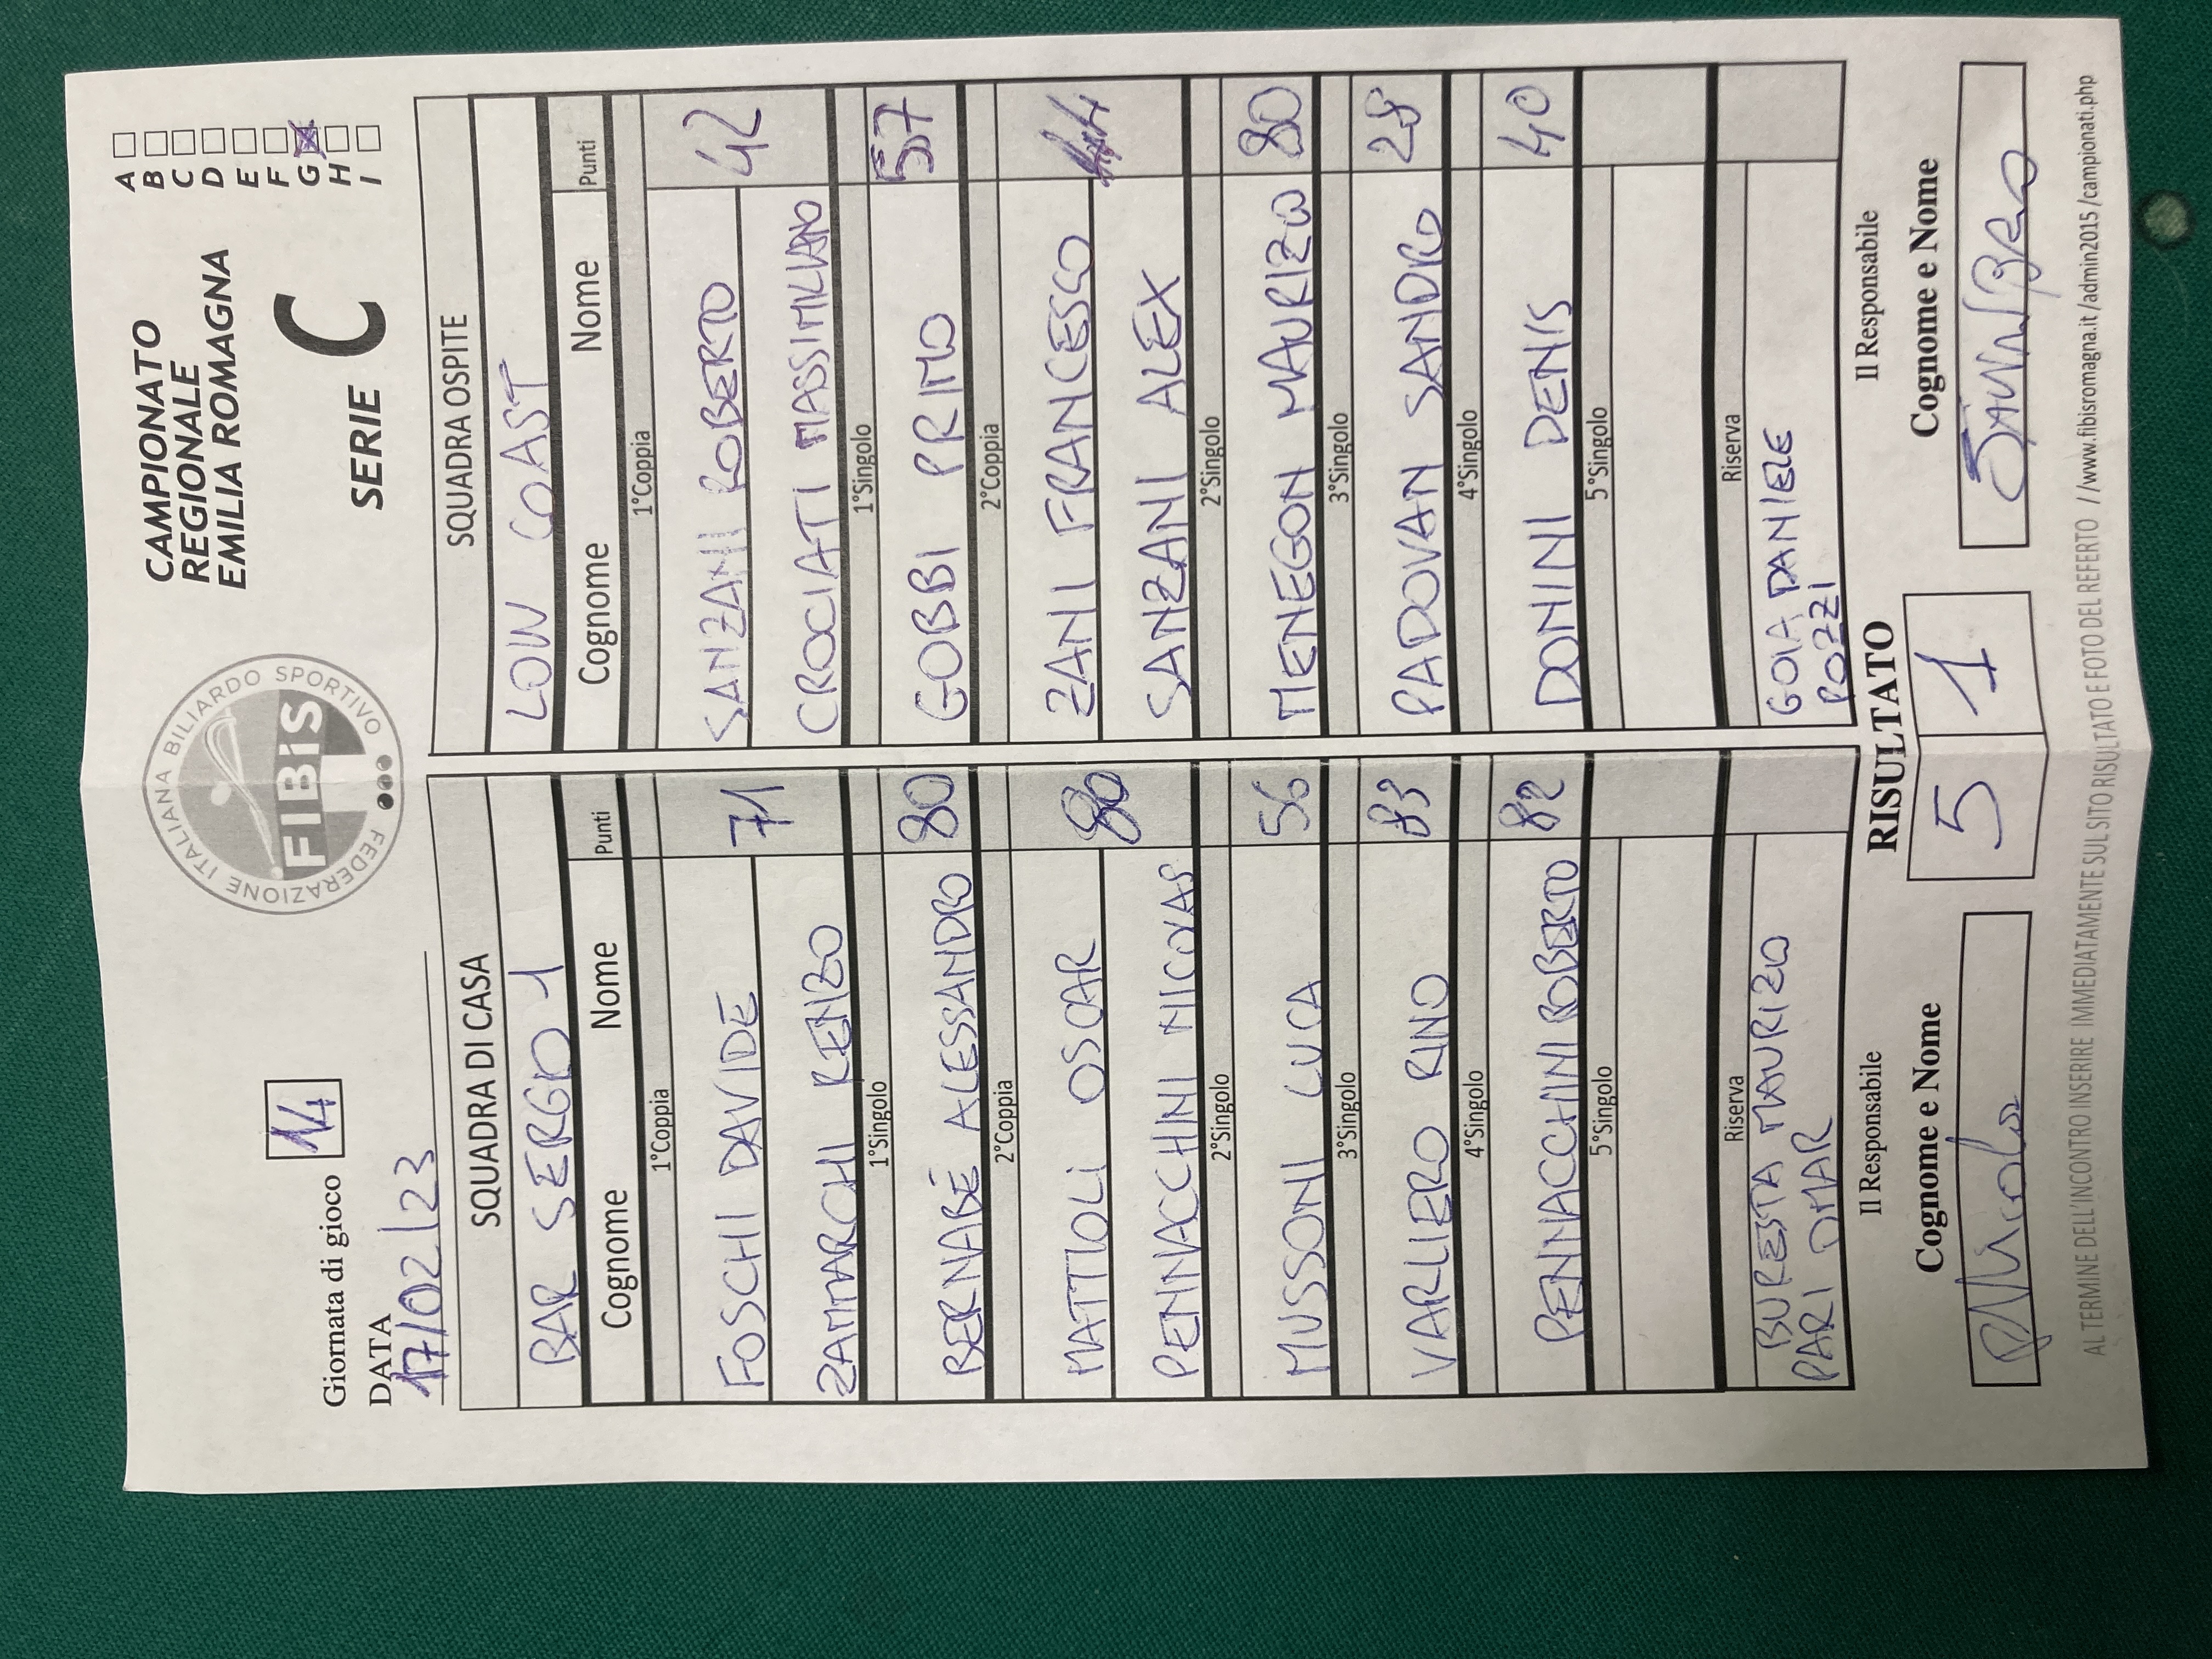 Giornata di gioco 14
DATA
17/02/23
FEDERAZIONE ITALIANA BILIARDO SPORTIVO
FIBiS
CAMPIONATO
REGIONALE
EMILIA ROMAGNA
SERIE C
A
B
C
D
E
F
G
H
I
SQUADRA DI CASA
BAR SERGIO 1
Cognome Nome Punti
1°Coppia
FOSCHI DAVIDE 71
ZAMMARCHI RENZO
1°Singolo
BERNABÉ ALESSANDRO 80
2°Coppia
MATTIOLI OSCAR 80
PENNACCHINI NICOLAS
2°Singolo
MUSSONI LUCA 56
3°Singolo
VARLIERO RINO 83
4°Singolo
PENNACCHINI ROBERTO 82
5°Singolo
Riserva
BURESTA MAURIZIO
PARI OMAR
SQUADRA OSPITE
LOW COAST
Cognome Nome Punti
1°Coppia
SANZANI ROBERTO 42
CROCIATI MASSIMILIANO
1°Singolo
GOBBI PRIMO 57
2°Coppia
ZANI FRANCESCO 44
SANZANI ALEX
2°Singolo
MENEGON MAURIZIO 80
3°Singolo
PADOVAN SANDRO 28
4°Singolo
DONINI DENIS 40
5°Singolo
Riserva
GOIA DANIELE
POZZI
Il Responsabile
Cognome e Nome
RISULTATO
5 1
Il Responsabile
Cognome e Nome
AL TERMINE DELL'INCONTRO INSERIRE IMMEDIATAMENTE SUL SITO RISULTATO E FOTO DEL REFERTO //www.fibisromagna.it/admin2015/campionati.php